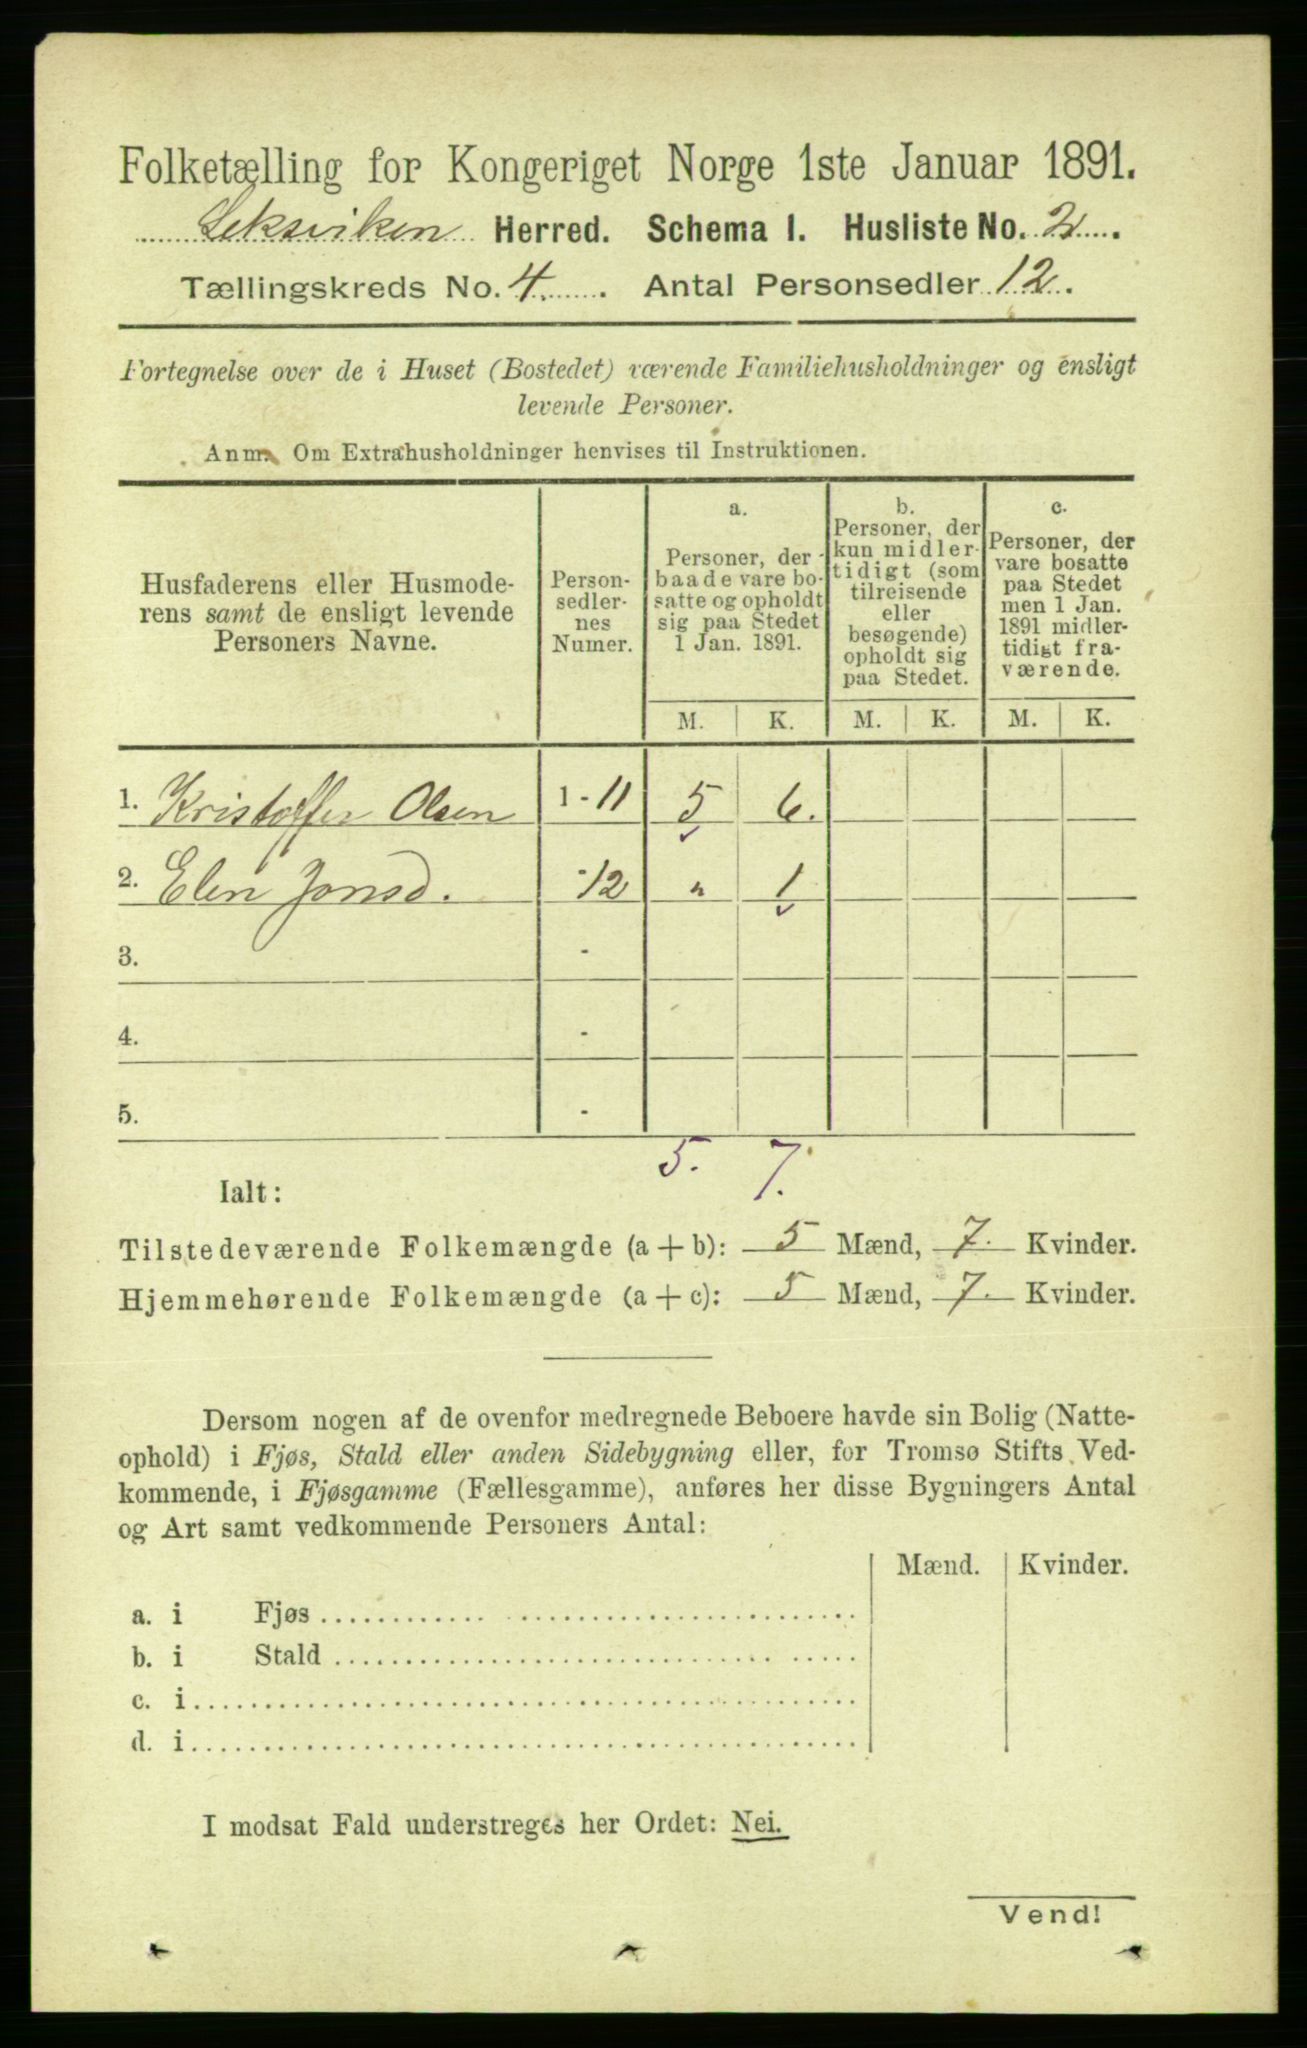 Folketælling for Kongeriget Norge 1ste Januar 1891.
Leksviken Herred. Schema I. Husliste No. 2.
Tællingskreds No. 4. Antal Personsedler 12.
Fortegnelse over de i Huset (Bostedet) værende Familiehusholdninger og ensligt
levende Personer.
Anm. Om Extrahusholdninger henvises til Instruktionen.
Husfaderens eller Husmode-
rens samt de ensligt levende
Personers Navne.
Person-
sedler-
nes
Numer.
a.
Personer, der
baade vare bo-
satte og opholdt
sig paa Stedet
1 Jan. 1891.
b.
Personer, der
kun midler-
tidigt (som
tilreisende
eller
besøgende)
opholdt sig
paa Stedet.
c.
Personer, der
vare bosatte
paa Stedet
men 1 Jan.
1891 midler-
tidigt fra-
værende.
M. K. M. K. M. K.
1. Kristoffer Olsen 1-11 5 6.
2. Elen Jonsd. -12 " 1
3. -
4. -
5. -
5. 7.
Ialt:
Tilstedeværende Folkemængde (a+b): 5 Mænd, 7. Kvinder.
Hjemmehørende Folkemængde (a+c): 5 Mænd, 7. Kvinder.
Dersom nogen af de ovenfor medregnede Beboere havde sin Bolig (Natte-
ophold) i Fjøs, Stald eller anden Sidebygning eller, for Tromsø Stifts Ved-
kommende, i Fjøsgamme (Fællesgamme), anføres her disse Bygningers Antal
og Art samt vedkommende Personers Antal:
Mænd. Kvinder.
a. i Fjøs
b. i Stald
c. i
d. i
I modsat Fald understreges her Ordet: Nei.
Vend!